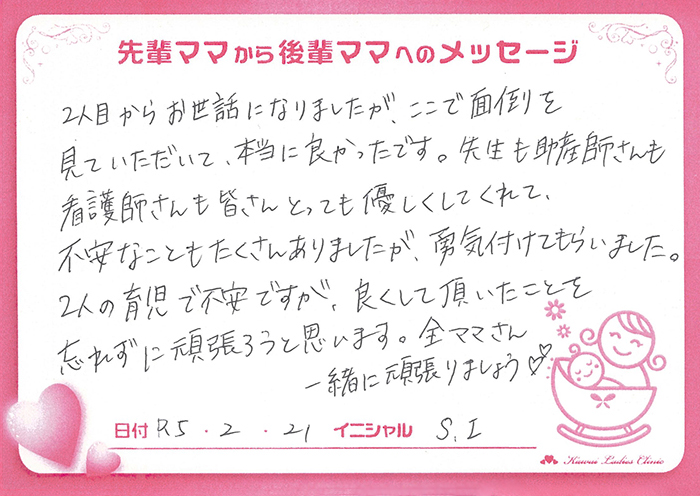 先輩ママから後輩ママへのメッセージ
2人目からお世話になりましたが、ここで面倒を
見ていただいて、本当に良かったです。先生も助産師さんも
看護師さんも皆さんとっても優しくしてくれて、
不安なこともたくさんありましたが、勇気付けてもらいました。
2人の育児で不安ですが、良くして頂いたことを
忘れずに頑張ろうと思います。全ママさん
一緒に頑張りましょう♡♡
日付 R5・2・21 イニシャル S.I
Kawai Ladies Clinic